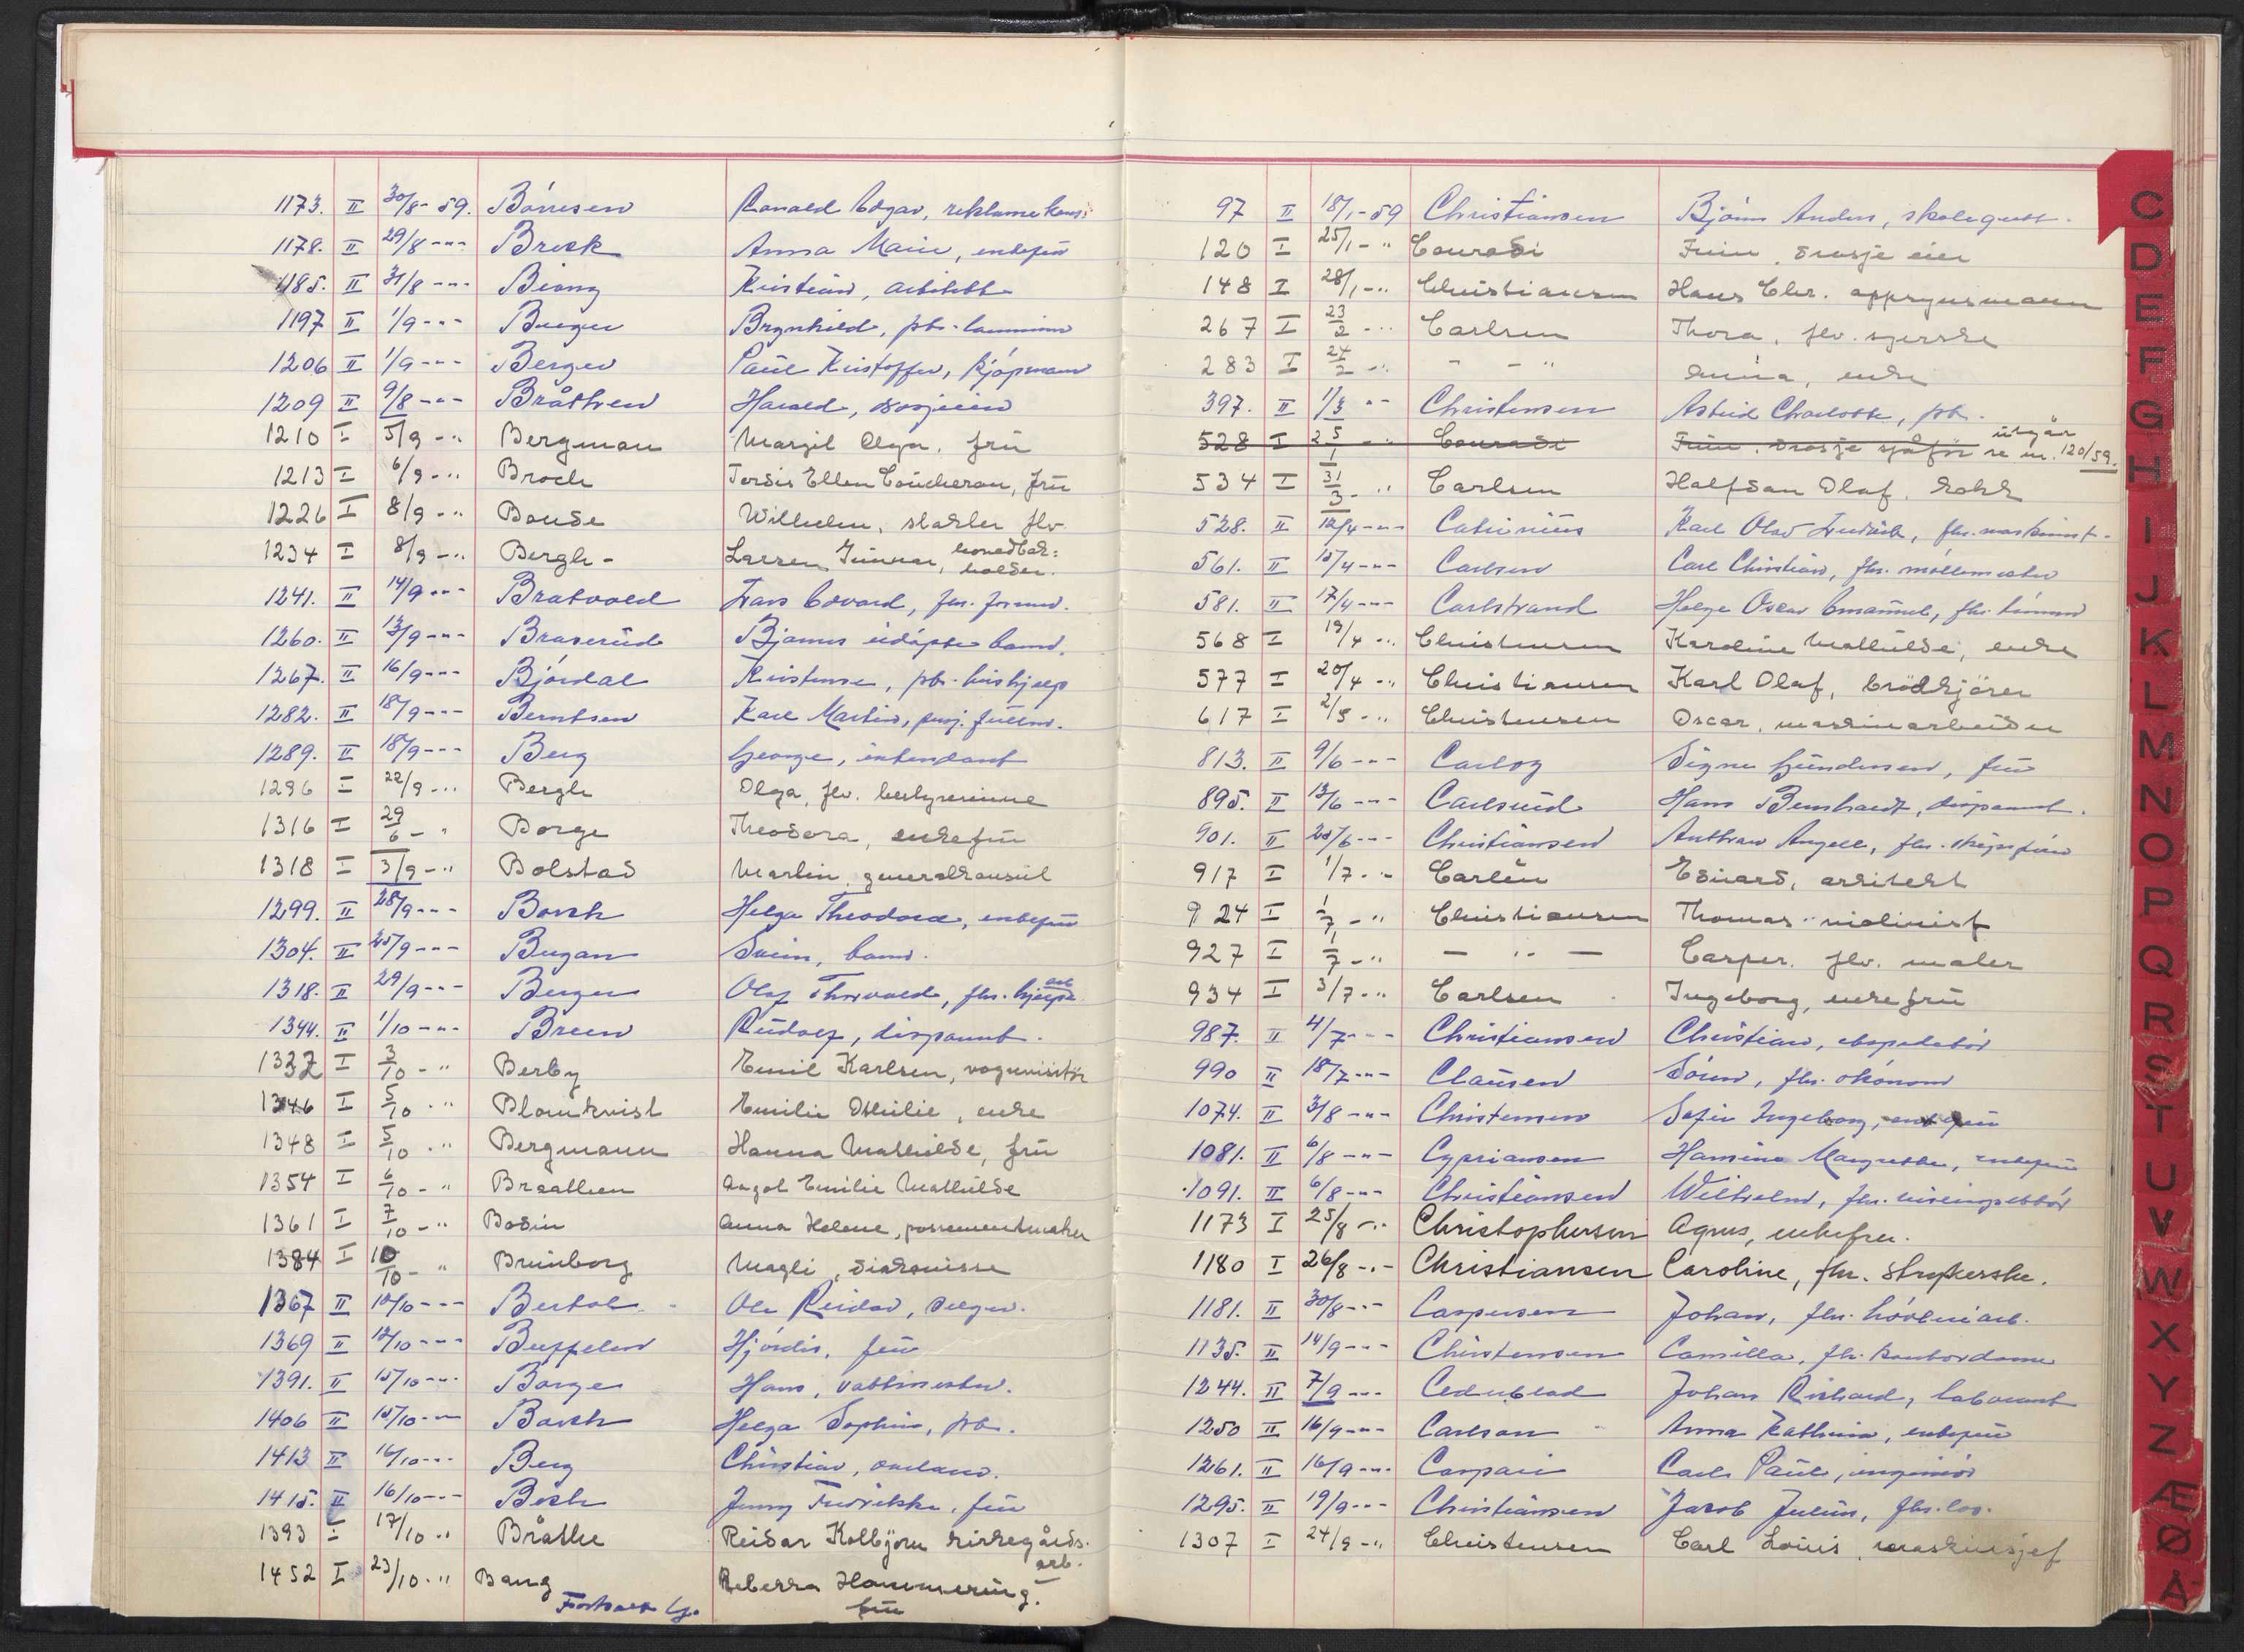 1173. II 30/8-59. Börresen Ronald Edgar, reklamekons.
1178. II 29/8 -"- Breck Anna Marie, enkefru
1185. II 31/8 -"- Biong Kristian, arkitekt
1197 II 1/9 -"- Berger Brynhild, pb.
1206 II 1/9 -"- Berger Paul Kristoffer, kjöpmann
1209 II 9/8 -"- Bråthen Harald, drosjeeier
1210 I 5/9 -" Bergman Margit Olga, frü
1213 I 6/9 -" Broch Tordis Ellen Coucheron, frü
1226 I 8/9 -" Bonde Wilhelm, slakter flv.
1234 I 8/9 -" Bergh- Larsen Gunnar, hovedbok:
holder.
1241. II 14/9 -"- Bratvold Lars Edvard, fhr. formd.
1260. II 13/9 -"- Braserud Bjarnes udöpte barn.
1267. II 16/9 -"- Björdal Kristense, pb. hushjelp
1282. II 18/9 -"- Berntsen Karl Martin, pens. fullm.
1289. II 18/9 -"- Berg George, intendant
1296 I 22/9 -" Bergh Olga, flv. bestyrerinne
1316 I 29/6 -" Borge Theodora, enkefrü
1318 I 3/9 -" Bolstad Martin, generalkonsül
1299. II 28/9 -"- Borch Helga Theodora, enkefru
1304. II 25/9 -"- Bugan Svein, barn.
1318. II 29/9 -"- Berger Olaf Thorvald, fhr. hjelpearb.
1344. II 1/10 -"- Breen Rudolf, disponent.
1332 I 3/10 -" Berby Emil Karlsen, vognvisitör
1346 I 5/10 -" Blomkvist Emilie Othilie, enke
1348 I 5/10 -" Bergmann Hanna Mathilde, frü
1354 I 6/10 -" Braathen Aagot Emilie Mathilde
1361 I 7/10 -" Bodin Anna Helene, possementmaker
1384 I 10/10 -" Bruüborg Magli, diakonisse
1367 II 10/10 -"- Bertol Ole Reidar, selger.
1369 II 12/10 -"- Beuffelen Hjördis, frü
1391. II 15/10 -"- Borge Hans, vaktmester.
1406 II 15/10 -"- Borch Helga Sophie, pb.
1413 II 16/10 -"- Berg Christian,
1415. II 16/10 -"- Besh Jenny Fredrikke, frü
1393 I 17/10 -" Bråthe Reidar Kolbjörn kirkegårds-
arb.
1452 I 23/10 -" Bang Rebekka Hammering.
frü
97 II 18/1-59 Christiansen Björn Anders, skolegutt.
120 I 25/1 -" Conradi Finn, drosje eier
148 I 28/1 -" Christiansen Hans Chr. oppsynsmann
267 I 23/2 -" Carlsen Thora, flv. syerske
283 I 24/2 -" - - " Anna, enke
397. II 1/3 -" Christensen Astrid Charlotte, pb.
utgår
528 I 25/1 -" Conradi Finn, drosje sjåför se nr. 120/59.
534 I 31/3 -" Carlsen Halfdan Olaf, kokk
528. II 12/4 -"- Catrinius Karl Olav Fredrik, fhr. maskinist.
561. II 15/4 -"- Carlsen Carl Christian, fhr. möllemester
581. II 17/4 -"- Carlstrand Helge Oscar Emanuel, fhr.
568 I 19/4 -" Christensen Karoline Mathilde, enke
577 I 20/4 -" Christiansen Karl Olaf, brödkjörer
617 I 2/5 -" Christensen Oscar, maskinarbeider
813. II 9/6 -"- Carlog Signe Gundersen, frü
895. II 13/6 -"- Carlsrud Hans Bernhardt, disponent.
901. II 20/6 -"- Christiansen Anthran Angell, fhr. skipsförer
917 I 1/7 -" Carlén Edvard, arkitekt
924 I 1/7 -" Christiansen Thomas violinist
927 I 1/7 -" - " - Casper, flv. maler
934 I 3/7 -" Carlsen Ingeborg, enkefrü
987. II 4/7 -"- Christiansen Christian, ekspeditör
990 II 18/7 -"- Clausen Sören, fhr. ökonom
1074. II 3/8 -"- Christensen Sofie Ingeborg, enkefrü
1081. II 6/8 -"- Cypriansen Hansine Margrethe, enkefrü
1091. II 6/8 -"- Christiansen Wilhelm, fhr.
1173 I 25/8 -" Christophersen Agnes, enkefru.
1180 I 26/8 -"- Christiansen Caroline, fhr. strykerske.
1181. II 30/8 -"- Caspersen Johan, fhr. hövleriarb.
1135. II 14/9 -"- Christensen Camilla, fh. kontordame
1244. II 7/9 -"- Cederblad Johan Richard, laborant
1250 II 16/9 -"- Carlson Anna Kathrina, enkefrü
1261. II 16/9 -"- Caspari Carl Paul, ingeniör
1295. II 19/9 -"- Christiansen Jacob Julius, fhr. los.
1307 I 24/9 -" Christensen Carl Louis, maskinsjef
C
D
E
F
G
H
I
J
K
L
M
N
O
P
Q
R
S
T
U
V
W
X
Y
Z
Æ
Ø
Å